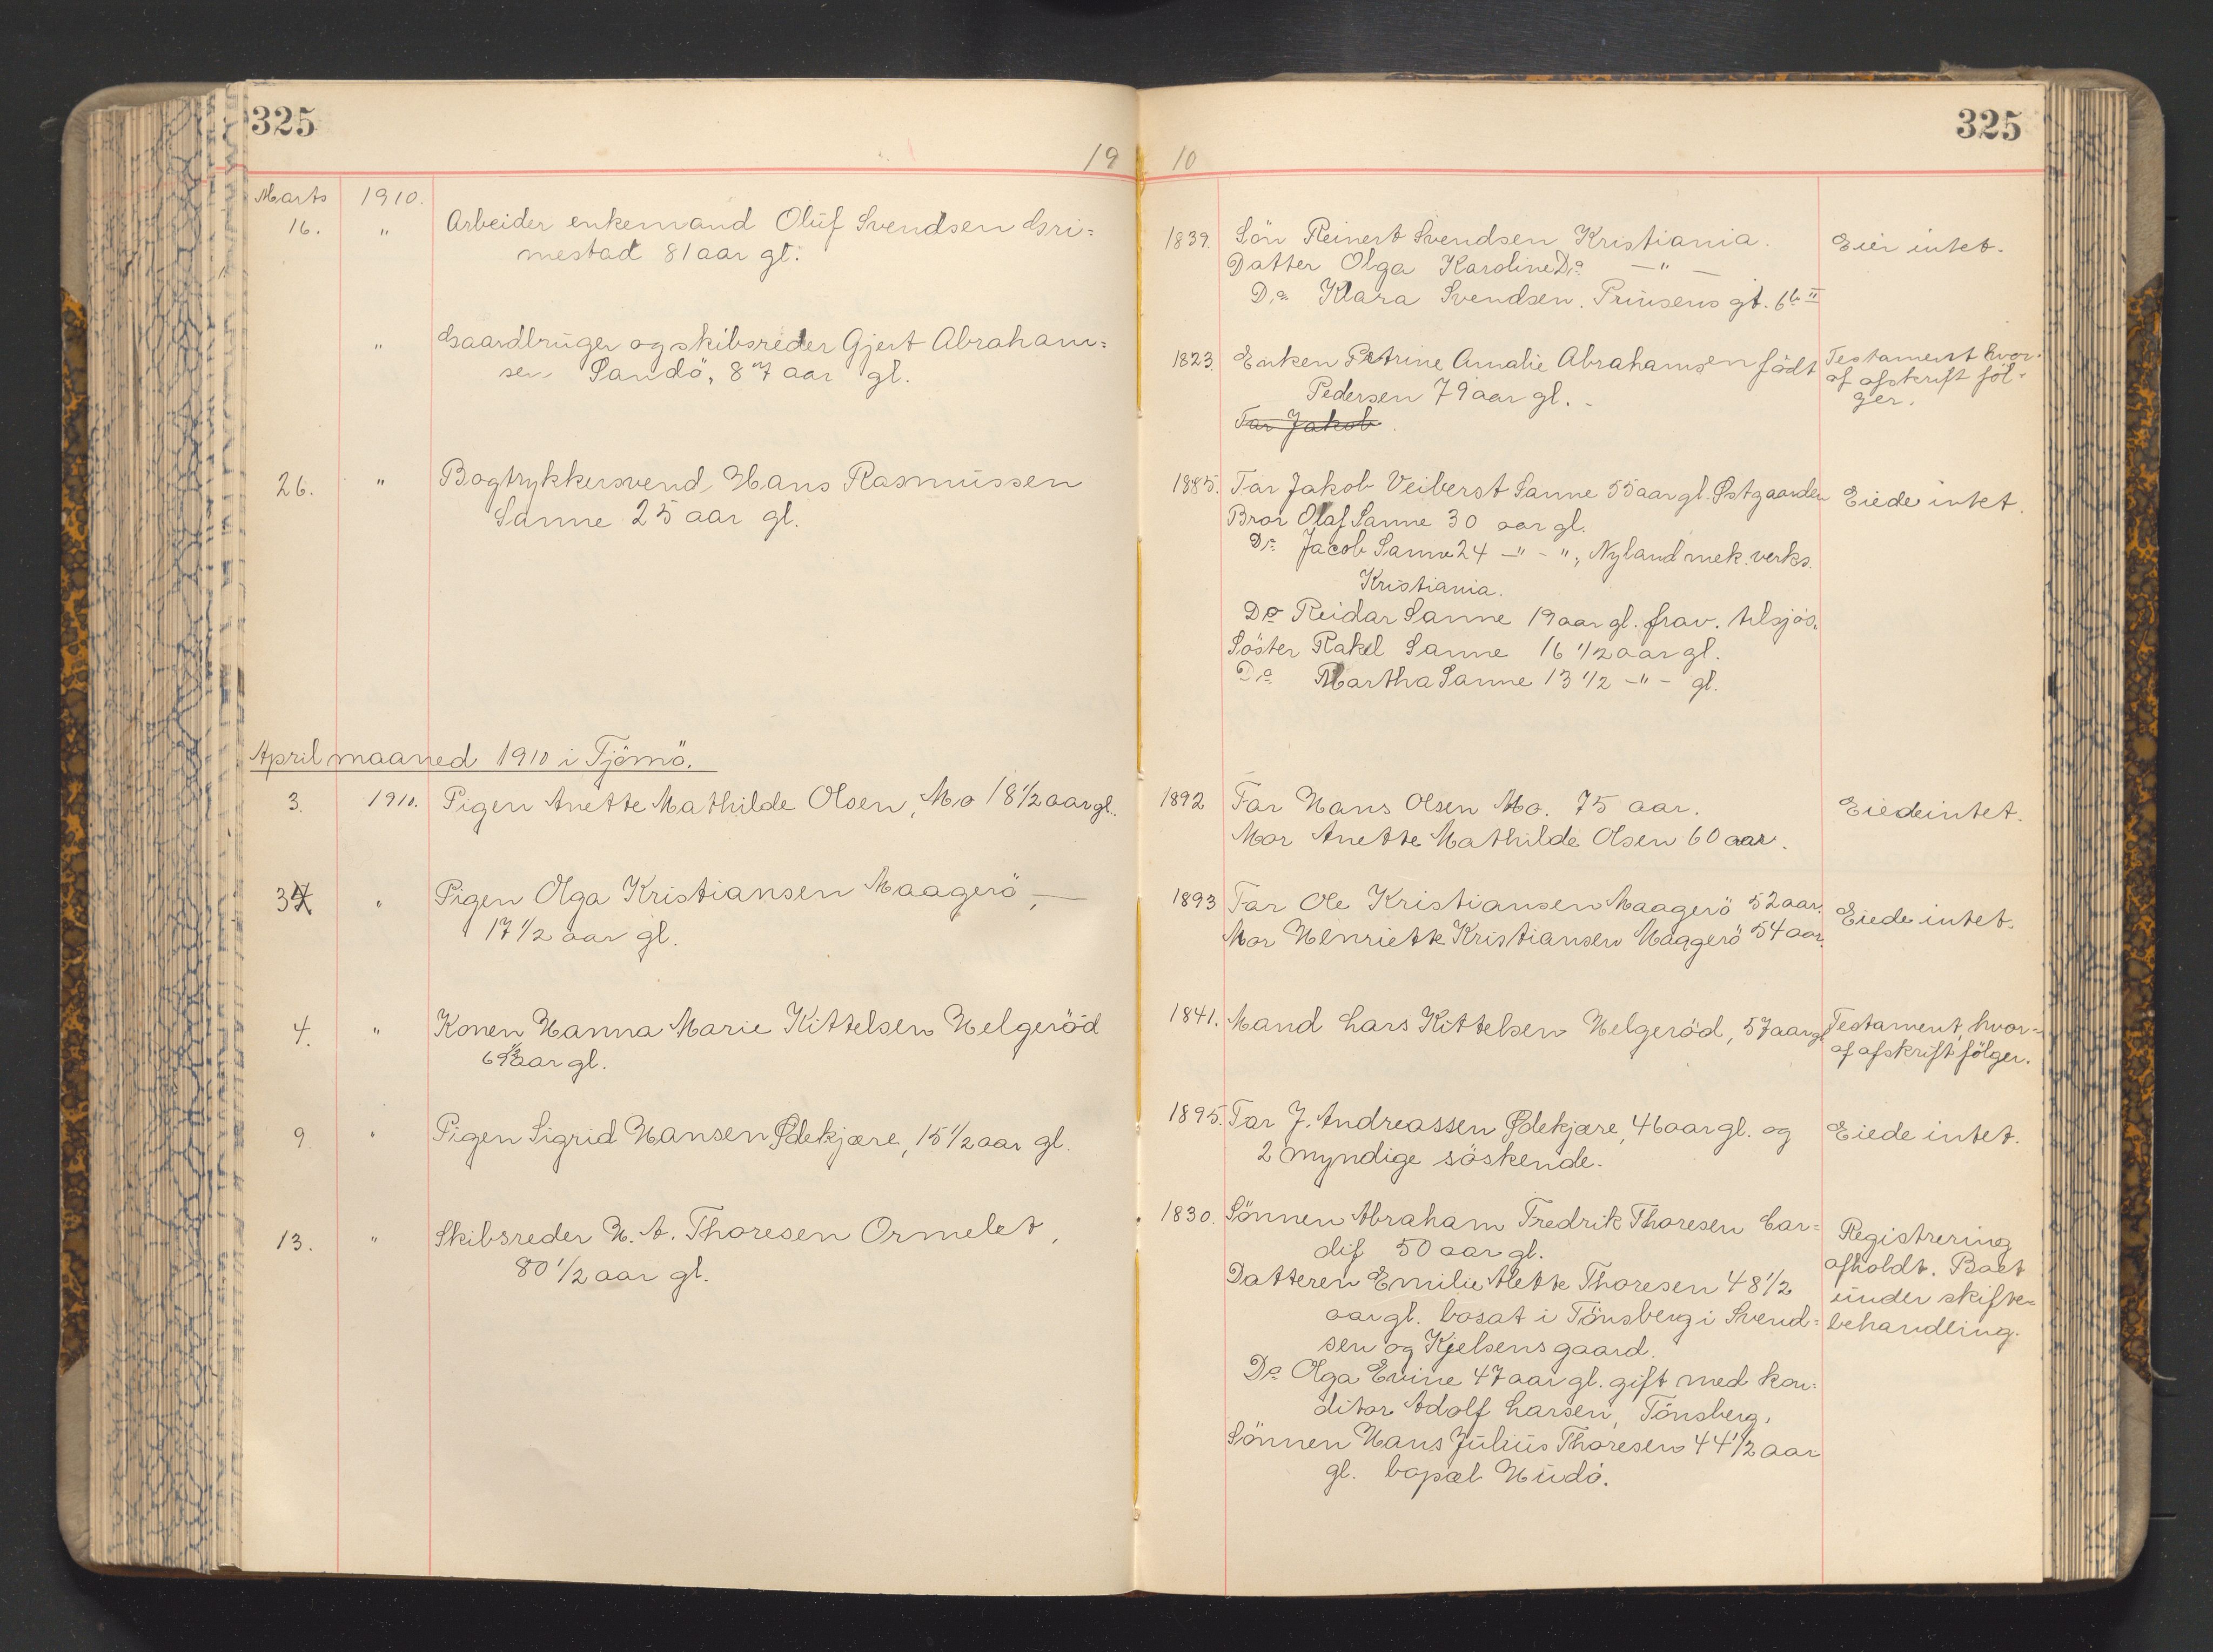 325
19
Marts 1910.
16. " Arbeider enkemand Oluf Svendsen Gri=
mestad 81 aar gl.
" Gaardbruger og skibsreder Gjert Abraham=
sen Sandö, 87 aar gl.
26. " Bogtrykkersvend Hans Rasmussen
Sanne 25 aar gl.
April maaned 1910 i Tjömö.
3. 1910. Pigen Anette Mathilde Olsen, Mo 18 1/2 aar gl.
3 " Pigen Olga Kristiansen Maagerö, —
17 1/2 aar gl.
4. " Konen Hanna Marie Kittelsen Helgeröd
69 aar gl.
9. " Pigen Sigrid Hansen Ødekjære, 15 1/2 aar gl.
13. " Skibsreder H. A. Thoresen Ormelet,
80 1/2 aar gl.
325
10
1839. Sön Reinert Svendsen Kristiania. Eier intet.
Datter Olga Karoline Do — " —
Do Klara Svendsen. Prinsens gt. 6b II
1823. Enken Petrine Amalie Abrahamsen födt Testament hvor-
Pedersen 79 aar gl. - af afskrift föl-
Far Jakob ger.
1885. Far Jakob Veiberst Sanne 55 aar gl. Østgaarden Eiede intet.
Bror Olaf Sanne 30 aar gl.
Do Jacob Sanne 24 — " - ", Nyland mek. verks.
Kristiania.
Do Reidar Sanne 19 aar gl. frav. tilsjös.
Söster Rakel Sanne 16 1/2 aar gl.
Do Martha Sanne 13 1/2 - " - gl.
1892 Far Hans Olsen Mo. 75 aar. Eiede intet.
Mor Anette Mathilde Olsen 60 aar.
1893 Far Ole Kristiansen Maagerö 52 aar. Eiede intet.
Mor Henriette Kristiansen Maagerö 54 aar.
1841. Mand Lars Kittelsen Helgeröd, 57 aar gl. Testament, hvor=
af afskrift fölger.
1895. Far J. Andreassen Ødekjære, 46 aar gl. og Eiede intet.
2 myndige söskende.
1830. Sönnen Abraham Fredrik Thoresen Car= Registrering
dif 50 aar gl. afholdt. Boet
Datteren Emilie Alette Thoresen 48 1/2 under skifte=
aar gl. bosat i Tönsberg i Svend= behandling.
sen og Kjelsens gaard.
Do Olga Evine 47 aar gl. gift med kon=
ditor Adolf Larsen, Tönsberg,
Sönnen Hans Julius Thoresen 44 1/2 aar
gl. bopæl Hudö.